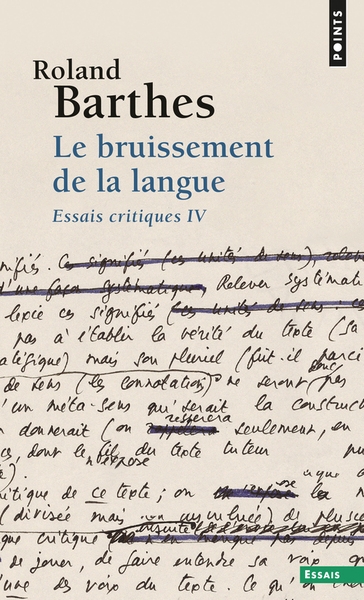 POINTS
Roland
Barthes
Le bruissement
de la langue
Essais critiques IV
nifiés. Ces signifiés (ces unités de sens), 
d'une façon systématique, Relever systémati
lexie ces signifiés (ces unités de sens
pas à établir la vérité du texte (sa
atégique) mais son pluriel (fût-il parci
donc
de sens (les connotations) ne seront pas
d'un méta-sens qui serait la construc
respectera
donnerait (on seulement, en
es, dont le fil du texte tuteur pu
n'expose
itique de ce texte; on la
(divisée mais non de plusie
ensuite
que critique
de jouer, de faire entendre sa voix
d'une des voix du texte. Ce qu'on
Essais